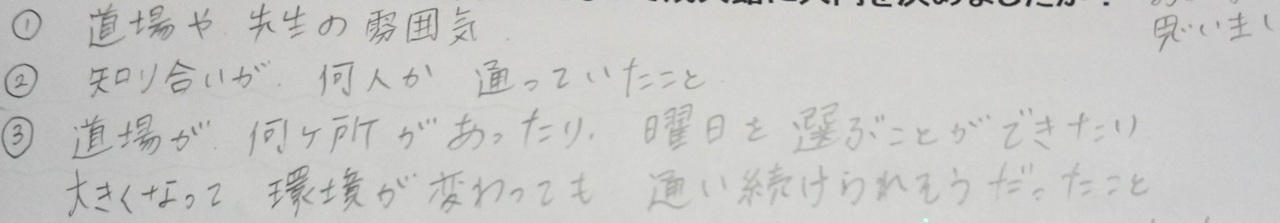 て成美館に入門を決めましたか？
① 道場や、先生の雰囲気
思いまし
② 知り合いが、何人か 通っていたこと
③ 道場が、何ヶ所があったり、曜日を選ぶことができたり
大きくなって 環境が変わっても 通い続けられそうだったこと